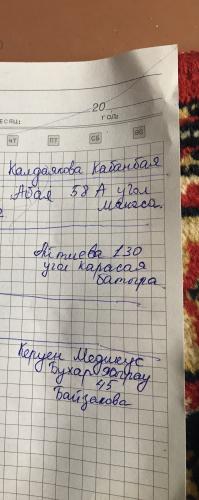 20
месяц: год:
ЧТ ПТ СБ ВС
Калдаякова Кабанбая
Абая 58 А угол
Манаса.
Айтиева 130
угол Карасая
Батыра
Керуен Медикус
Бухар Жырау
45
Байзакова